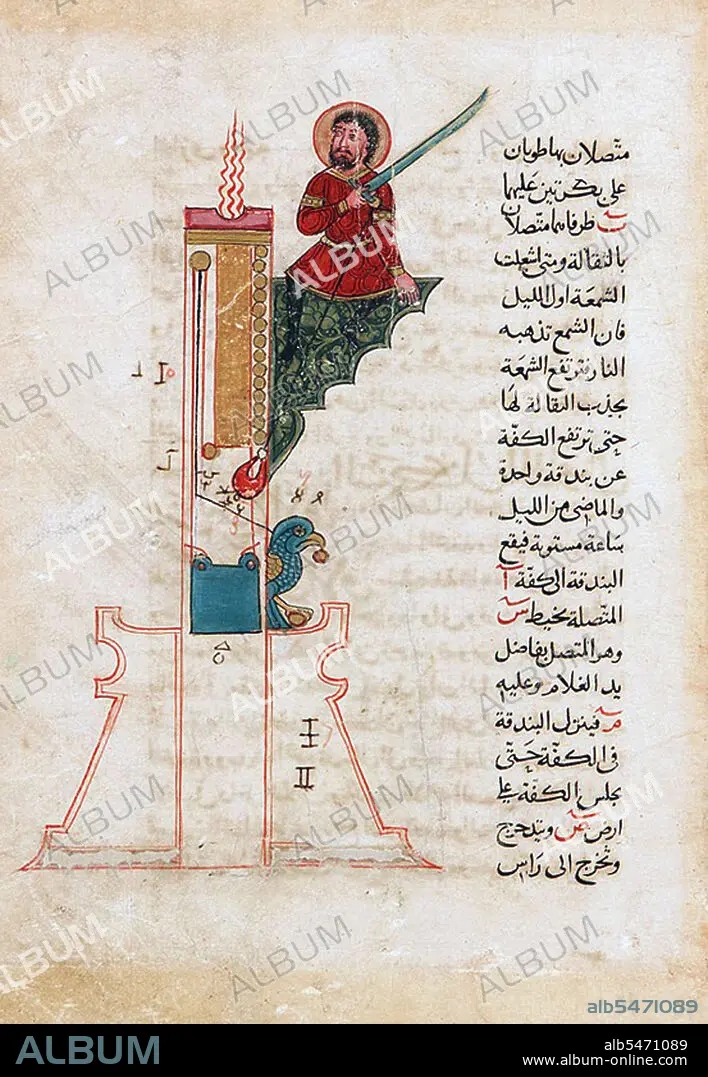 متصلان بها طوبان
على بكرتين عليهما
طرفاهما متصلان
بالثقالة ومتى اشعلت
الشمعة اول الليل
فان الشمع تذهبه
النار فترتفع الشمعة
بجذب الثقالة لها
حتى ترتفع الكفة
عن بندقة واحدة
والماضى من الليل
ساعة مستوية فيقع
البندقة الى كفة آ
المتصلة بخيط س
وهو المتصل بفاضل
يد الغلام وعليه
فينزل البندقة
فى الكفة حتى
يجلس الكفة على
ارض ويتدحرج
وتخرج الى راس
ALBUM
alb5471089
ALBUM
alb5471089
www.album-online.com